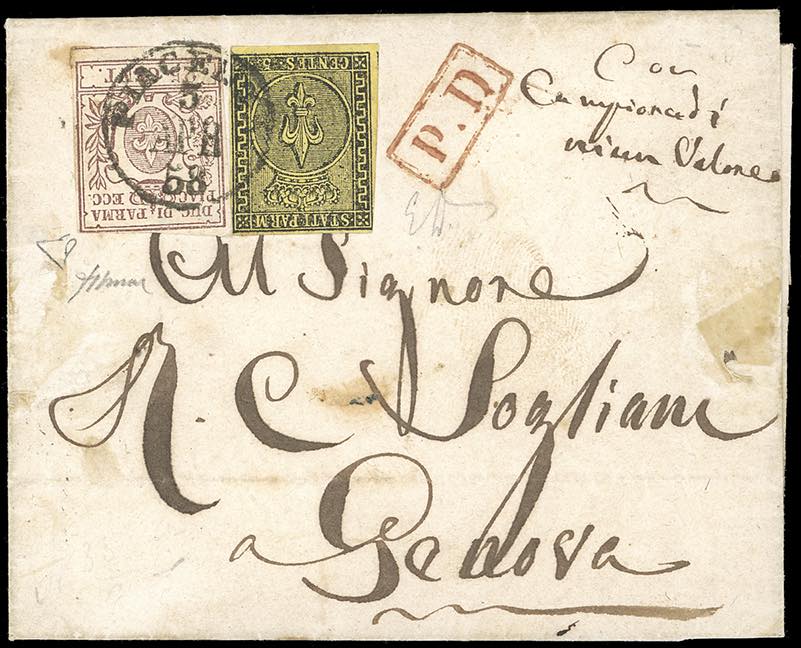 PIACENZA
5
58
CENT
DUC. DI PARMA
PIAC. ECC.
CENTES. 5
STATI PARM
P.D.
Con
Campione di
niun Valore
Al Signore
A. C. Sogliani
a Genova